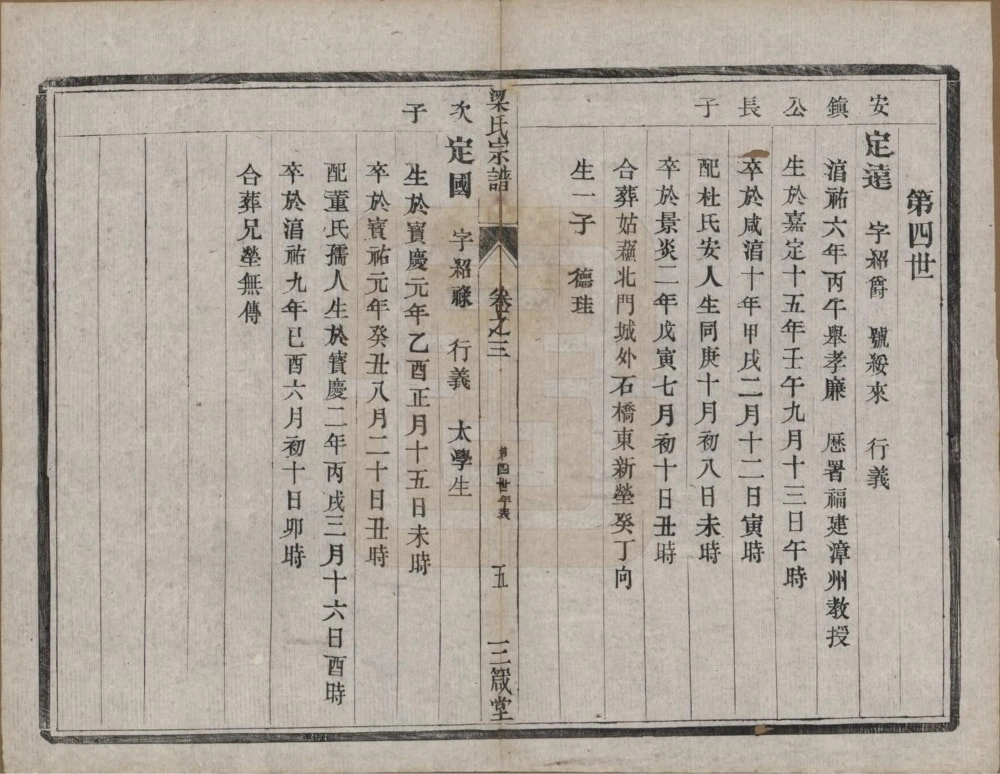 第四世
安鎮公長子
定達　字紹爵　號綏來　行義
淯祐六年丙午舉孝廉　歷署福建漳州教授
生於嘉定十五年壬午九月十三日午時
卒於咸淯十年甲戌二月十二日寅時
配杜氏安人生同庚十月初八日未時
卒於景炎二年戊寅七月初十日丑時
合葬姑蘓北門城外石橋東新塋癸丁向
生一子　德珪
梁氏宗譜　卷之三　第四世年表　五　三箴堂
次子
定國　字紹祿　行義　太學生
生於寶慶元年乙酉正月十五日未時
卒於寳祐元年癸丑八月二十日丑時
配董氏孺人生於寶慶二年丙戌三月十六日酉時
卒於淯祐九年巳酉六月初十日卯時
合葬兄塋無傳